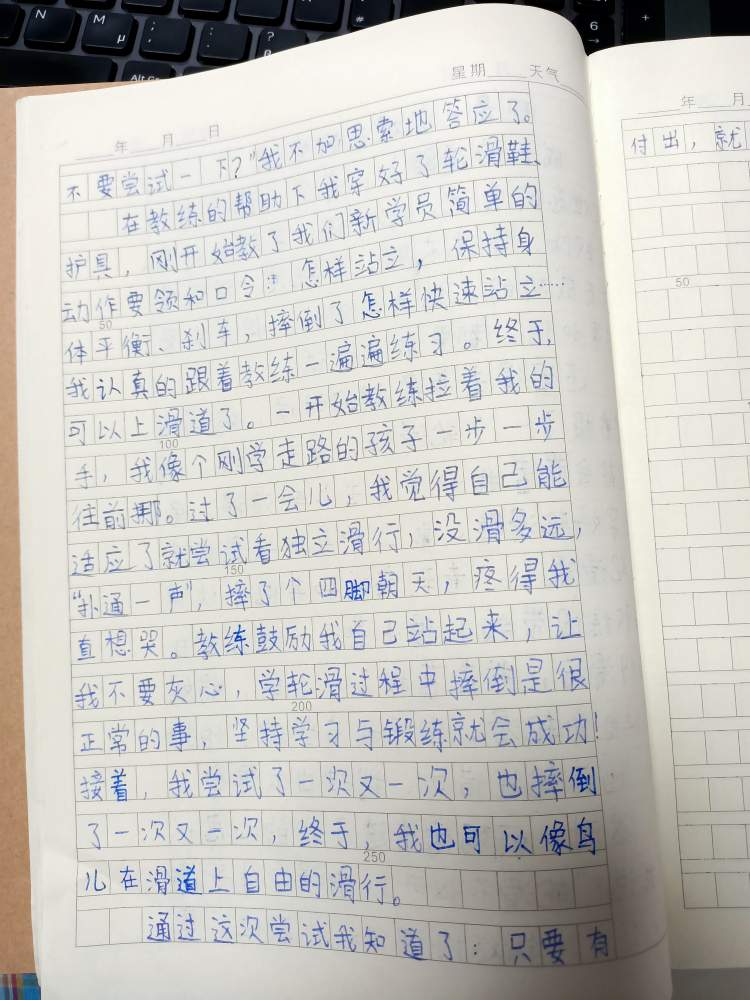 N M Alt Gr 6 +
星期 天气
年 月 日
不要尝试一下？”我不加思索地答应了。
在教练的帮助下我穿好了轮滑鞋、
护具，刚开始教了我们新学员简单的
动作要领和口令：怎样站立，保持身
50
体平衡、刹车，摔倒了怎样快速站立……
我认真的跟着教练一遍遍练习。终于，
可以上滑道了。一开始教练拉着我的
100
手，我像个刚学走路的孩子一步一步
往前挪。过了一会儿，我觉得自己能
适应了就尝试着独立滑行，没滑多远，
150
“扑通一声”，摔了个四脚朝天，疼得我
直想哭。教练鼓励我自己站起来，让
我不要灰心，学轮滑过程中摔倒是很
200
正常的事，坚持学习与锻练就会成功！
接着，我尝试了一次又一次，也摔倒
了一次又一次，终于，我也可以像鸟
250
儿在滑道上自由的滑行。
通过这次尝试我知道了：只要有
年 月
付出，就
50